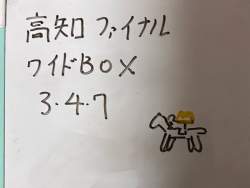 高知 ファイナル
ワイドBOX
3・4・7